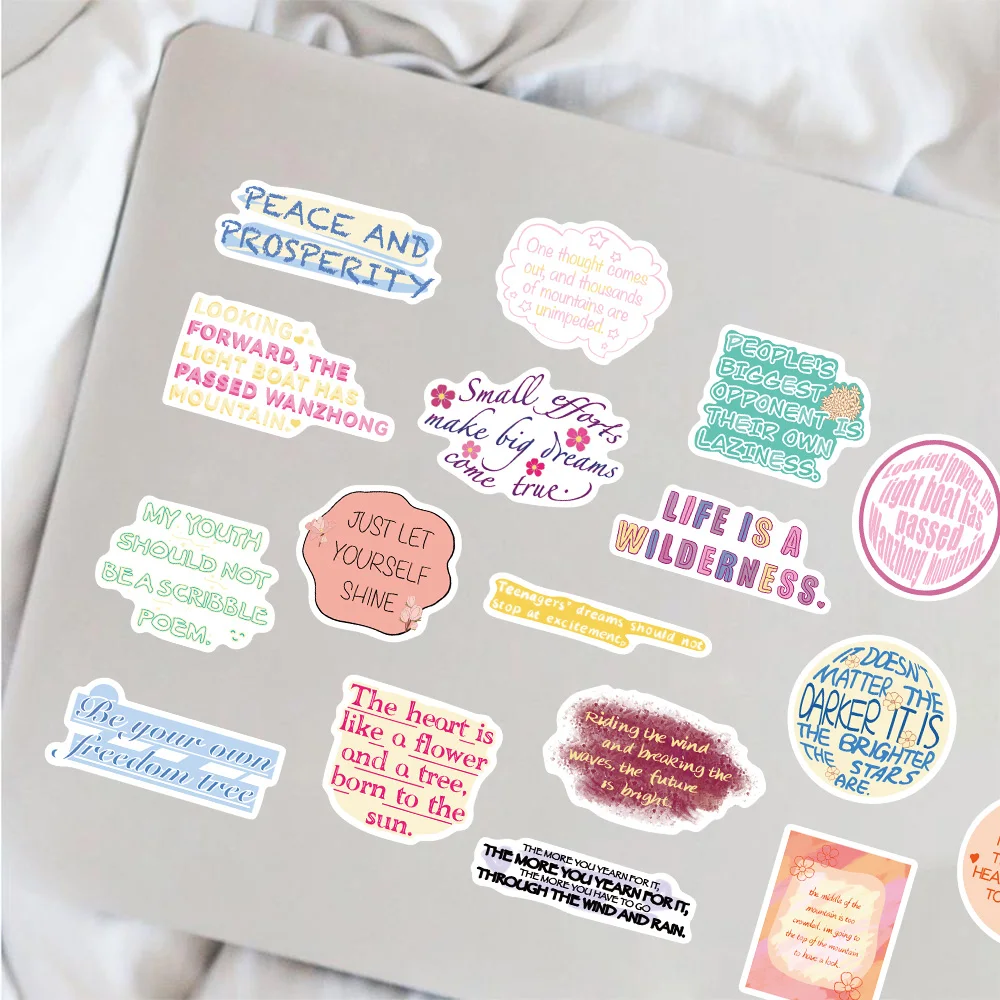 PEACE AND
PROSPERITY
One thought comes
out, and thousands
of mountains are
unimpeded.
LOOKING
FORWARD, THE
LIGHT BOAT HAS
PASSED WANZHONG
MOUNTAIN.
Small efforts
make big dreams
come true.
PEOPLE'S
BIGGEST
OPPONENT IS
THEIR OWN
LAZINESS.
Looking forward, the
light boat has
passed
Wanzhong Mountain.
MY YOUTH
SHOULD NOT
BE A SCRIBBLE
POEM.
JUST LET
YOURSELF
SHINE
LIFE IS A
WILDERNESS.
Teenagers' dreams should not
stop at excitement.
IT DOESN'T
MATTER THE
DARKER IT IS
THE BRIGHTER
THE STARS
ARE.
Be your own
freedom tree
The heart is
like a flower
and a tree,
born to the
sun.
Riding the wind
and breaking the
waves, the future
is bright.
THE MORE YOU YEARN FOR IT,
THE MORE YOU YEARN FOR IT,
THE MORE YOU HAVE TO GO
THROUGH THE WIND AND RAIN.
the middle of the
mountain is too
crowded, i'm going to
the top of the mountain
to have a look.
HEA
TO